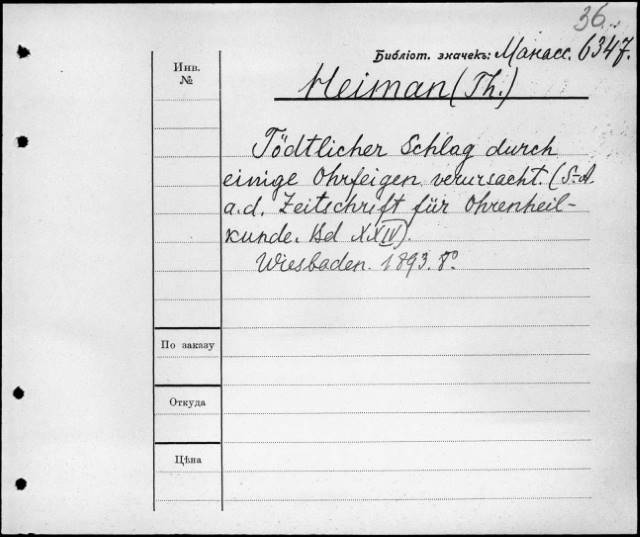 36.
Библіот. значекъ: Манасс. 6347.
Инв.
№
Heiman (Th.)
Tödtlicher Schlag durch
einige Ohrfeigen verursacht. (S.-A.
a. d. Zeitschrift für Ohrenheil-
kunde. Bd XXIV).
Wiesbaden. 1893. 8º.
По заказу
Откуда
Цѣна